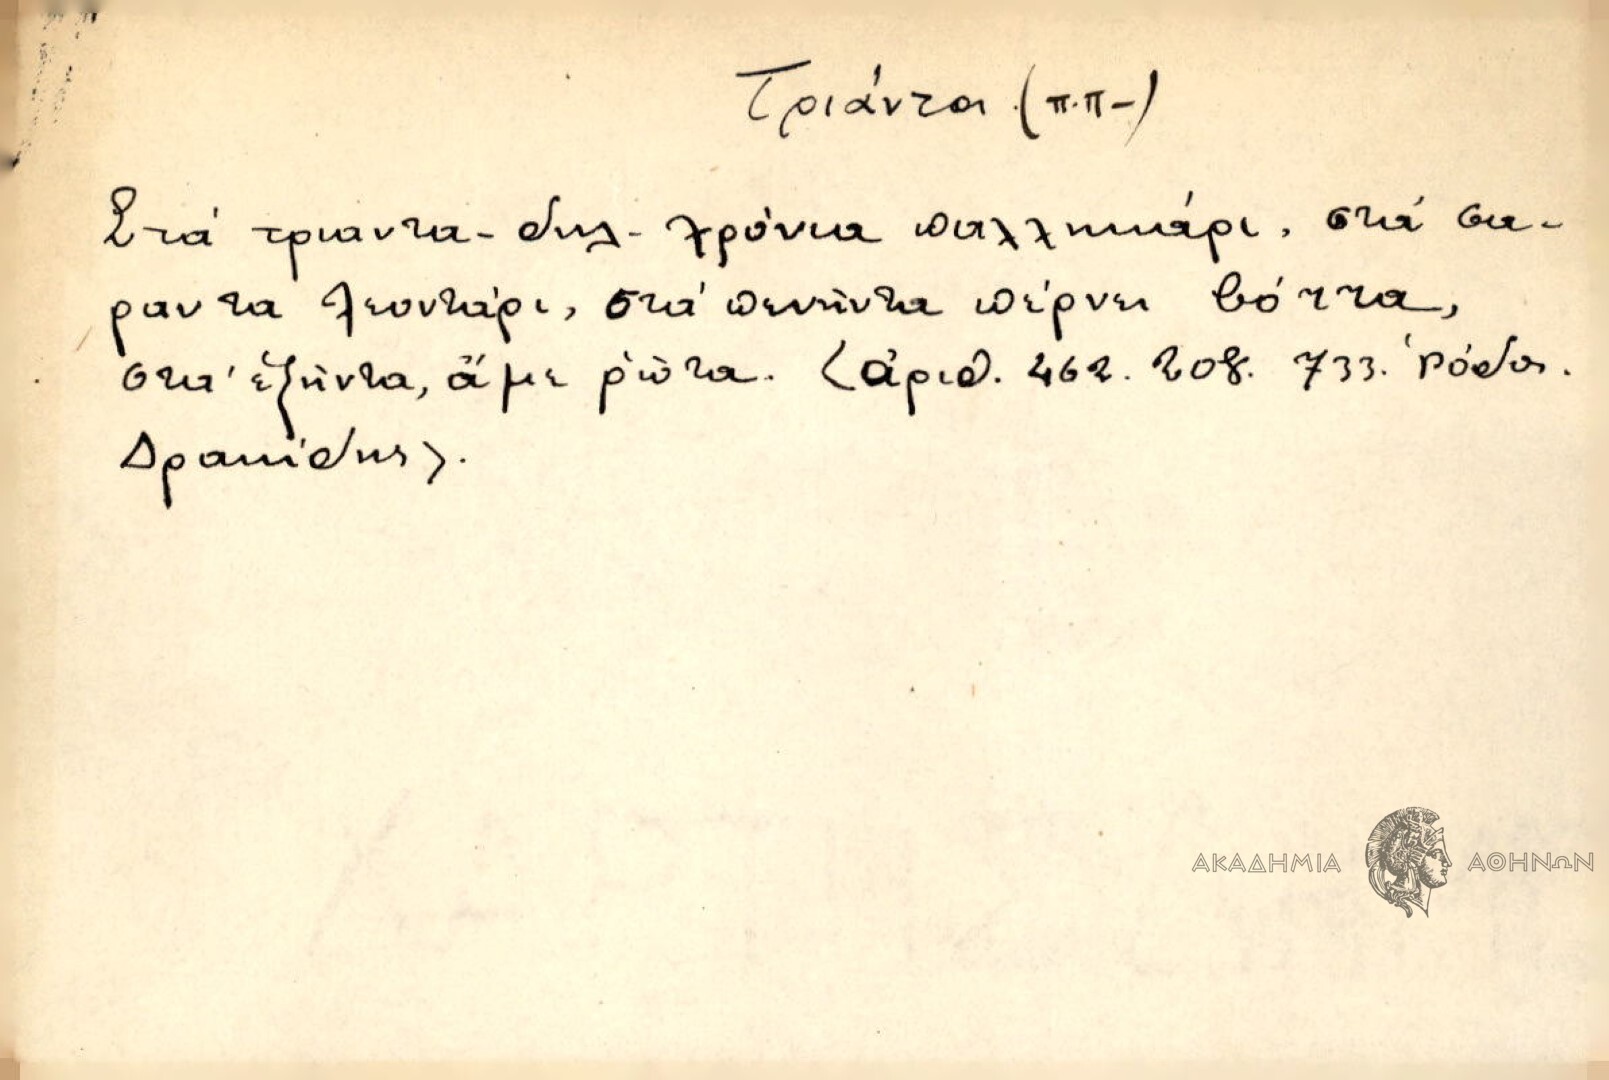 Τριάντα (π.π-)
Στά τριαντα-δηλ-χρόνια παλληκάρι, στά σα-
ραντα λεοντάρι, στά πενῆντα πέρνει βόττα,
στα' ἑξῆντα, ἄμε ῥώτα. (ἀριθ. 462. 208. 733. Ῥόδος.
Δρακίδης).
ΑΚΑΔΗΜΙΑ ΑΘΗΝΩΝ